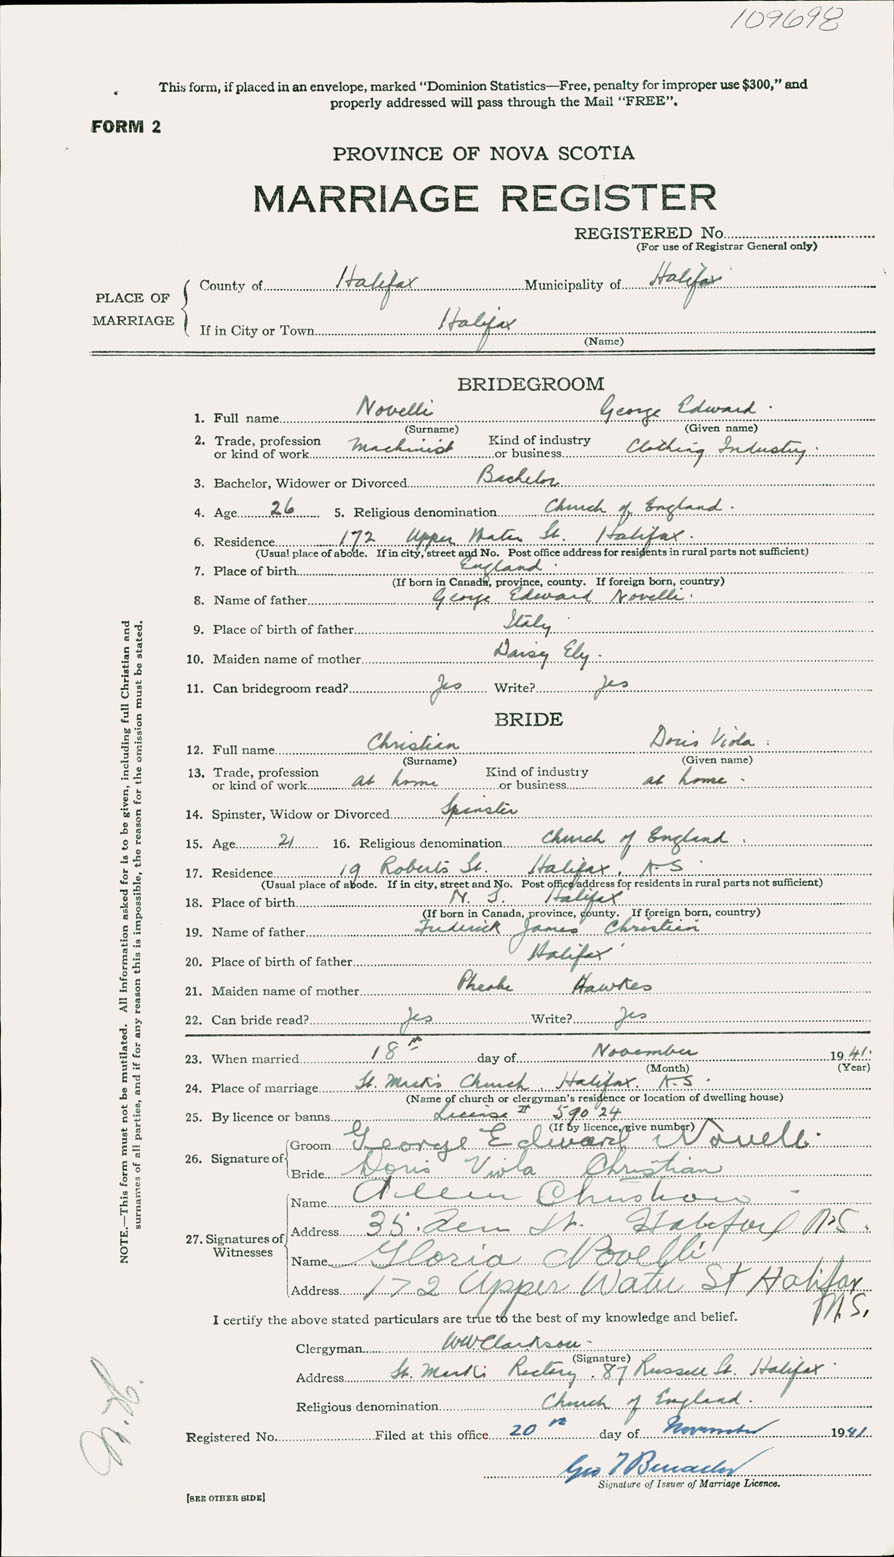 109698
This form, if placed in an envelope, marked "Dominion Statistics—Free, penalty for improper use $300," and
properly addressed will pass through the Mail "FREE".
FORM 2
PROVINCE OF NOVA SCOTIA
MARRIAGE REGISTER
REGISTERED No.
(For use of Registrar General only)
PLACE OF MARRIAGE
County of Halifax Municipality of Halifax
If in City or Town Halifax
(Name)
BRIDEGROOM
1. Full name Novelli George Edward
(Surname) (Given name)
2. Trade, profession or kind of work Machinist Kind of industry or business Clothing Industry
3. Bachelor, Widower or Divorced Bachelor
4. Age 26 5. Religious denomination Church of England
6. Residence 172 Upper Water St. Halifax
(Usual place of abode. If in city, street and No. Post office address for residents in rural parts not sufficient)
7. Place of birth England
(If born in Canada, province, county. If foreign born, country)
8. Name of father George Edward Novelli
9. Place of birth of father Italy
10. Maiden name of mother Daisy Ely
11. Can bridegroom read? Yes Write? Yes
BRIDE
12. Full name Christian Doris Viola
(Surname) (Given name)
13. Trade, profession or kind of work at home Kind of industry or business at home
14. Spinster, Widow or Divorced Spinster
15. Age 21 16. Religious denomination Church of England
17. Residence 19 Roberts St. Halifax, N.S
(Usual place of abode. If in city, street and No. Post office address for residents in rural parts not sufficient)
18. Place of birth N. S. Halifax
(If born in Canada, province, county. If foreign born, country)
19. Name of father Frederick James Christian
20. Place of birth of father Halifax
21. Maiden name of mother Pheobe Hawkes
22. Can bride read? Yes Write? Yes
23. When married 18th day of November 1941
(Month) (Year)
24. Place of marriage St. Mark's Church, Halifax. N.S.
(Name of church or clergyman's residence or location of dwelling house)
25. By licence or banns License # 59024
(If by licence, give number)
26. Signature of Groom George Edward Novelli
Bride Doris Viola Christian
27. Signatures of Witnesses
Name Christian
Address 35 St. Halifax N.S.
Name Gloria Novelli
Address 172 Upper Water St Halifax
N.S.
I certify the above stated particulars are true to the best of my knowledge and belief.
Clergyman WW Clarkson
(Signature)
Address St. Mark's Rectory, 87 Russell St. Halifax
Religious denomination Church of England
Registered No. Filed at this office 20th day of November 1941
Geo
Signature of Issuer of Marriage Licence.
[SEE OTHER SIDE]
NOTE.—This form must not be mutilated. All information asked for is to be given, including full Christian and
surnames of all parties, and if for any reason this is impossible, the reason for the omission must be stated.